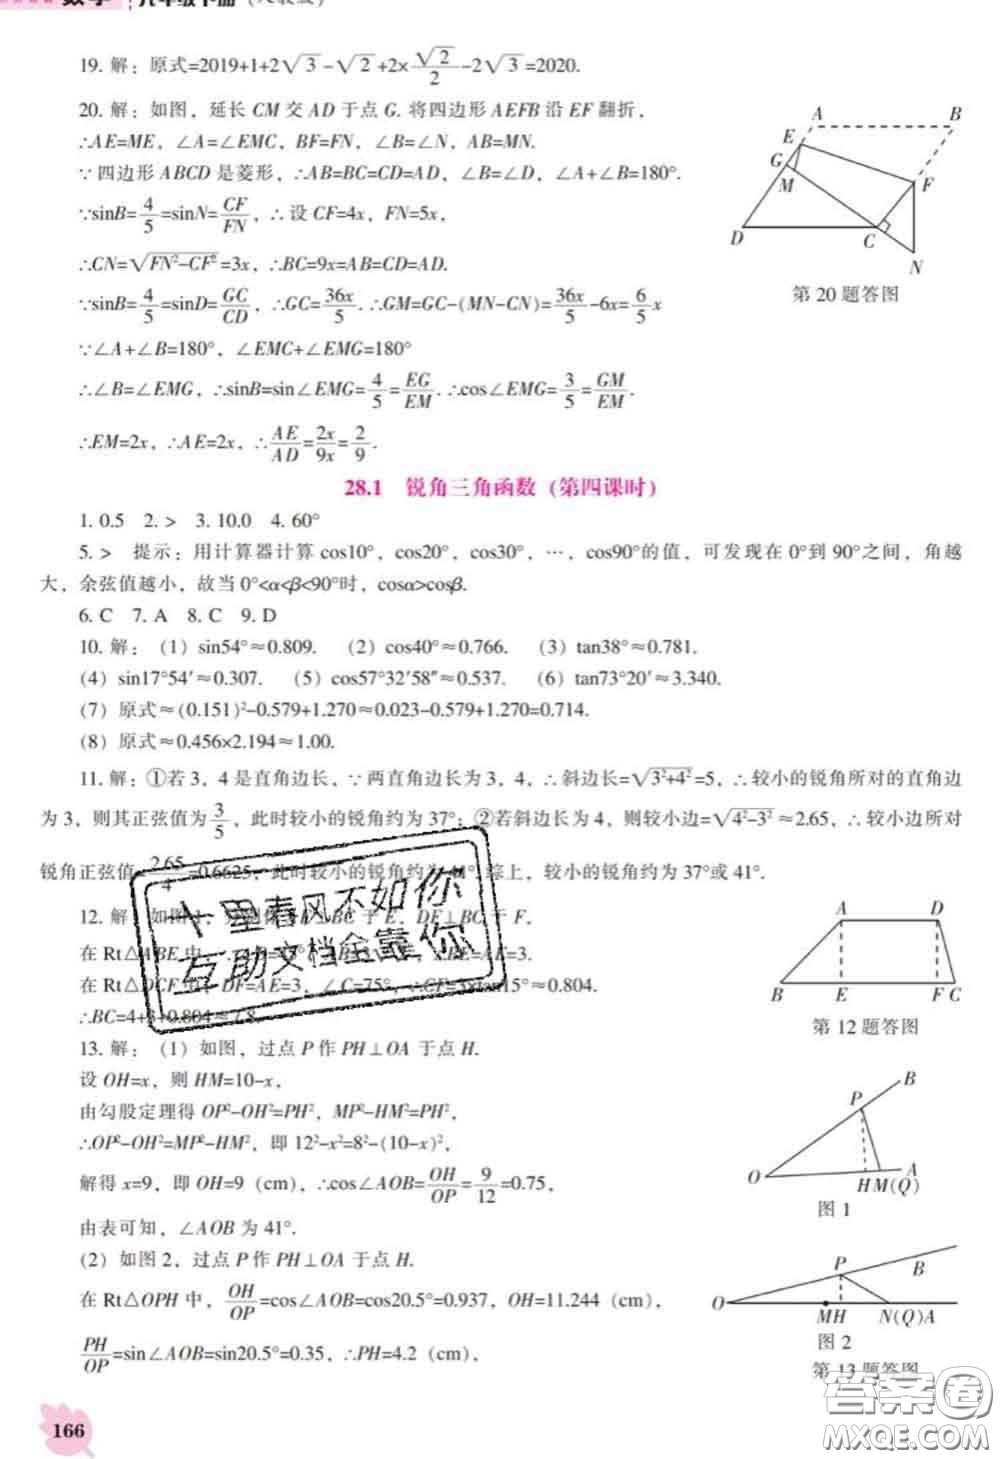 19. 解：原式=2019+1+2√3-√2+2×√2/2-2√3=2020.
20. 解：如图，延长 CM 交 AD 于点 G. 将四边形 AEFB 沿 EF 翻折，
∴AE=ME，∠A=∠EMC，BF=FN，∠B=∠N，AB=MN.
∵四边形 ABCD 是菱形，∴AB=BC=CD=AD，∠B=∠D，∠A+∠B=180°.
∵sinB=4/5=sinN=CF/FN，∴设 CF=4x，FN=5x，
∴CN=√FN²-CF²=3x，∴BC=9x=AB=CD=AD.
∵sinB=4/5=sinD=GC/CD，∴GC=36x/5. ∴GM=GC-(MN-CN)=36x/5-6x=6/5x
∵∠A+∠B=180°，∠EMC+∠EMG=180°
∴∠B=∠EMG，∴sinB=sin∠EMG=4/5=EG/EM. ∴cos∠EMG=3/5=GM/EM.
∴EM=2x，∴AE=2x，∴AE/AD=2x/9x=2/9.
A B E G M F D C N
第 20 题答图
28.1 锐角三角函数（第四课时）
1. 0.5 2. > 3. 10.0 4. 60°
5. > 提示：用计算器计算 cos10°，cos20°，cos30°，…，cos90°的值，可发现在 0°到 90°之间，角越
大，余弦值越小，故当 0°<α<β<90°时，cosα>cosβ.
6. C 7. A 8. C 9. D
10. 解：（1）sin54°≈0.809. （2）cos40°≈0.766. （3）tan38°≈0.781.
（4）sin17°54′≈0.307. （5）cos57°32′58″≈0.537. （6）tan73°20′≈3.340.
（7）原式≈(0.151)²-0.579+1.270≈0.023-0.579+1.270=0.714.
（8）原式≈0.456×2.194≈1.00.
11. 解：①若 3，4 是直角边长，∵两直角边长为 3，4，∴斜边长=√3²+4²=5，∴较小的锐角所对的直角边
为 3，则其正弦值为3/5，此时较小的锐角约为 37°；②若斜边长为 4，则较小边=√4²-3²≈2.65，∴较小边所对
锐角正弦值=2.65/4=0.6625，此时较小的锐角约为 41°.综上，较小的锐角约为 37°或 41°.
12. 解：如图1，BC 于 E，DF⊥BC 于 F，
在 Rt△ABE 中，BE=AE=3.
在 Rt△DCF 中，DF=AE=3，∠C=75°，∴CF=3×tan15°≈0.804.
∴BC=4+3+0.804≈7.8.
十里春风不如你
互助文档全靠你
A D B E F C
第 12 题答图
13. 解：（1）如图，过点 P 作 PH⊥OA 于点 H.
设 OH=x，则 HM=10-x，
由勾股定理得 OP²-OH²=PH²，MP²-HM²=PH²，
∴OP²-OH²=MP²-HM²，即 12²-x²=8²-(10-x)²，
解得 x=9，即 OH=9（cm），∴cos∠AOB=OH/OP=9/12=0.75，
由表可知，∠AOB 为 41°.
（2）如图 2，过点 P 作 PH⊥OA 于点 H.
在 Rt△OPH 中，OH/OP=cos∠AOB=cos20.5°=0.937，OH=11.244（cm），
PH/OP=sin∠AOB=sin20.5°=0.35，∴PH=4.2（cm），
B P O H M(Q) A
图 1
P B O M H N(Q) A
图 2
第 13 题答图
166
答案圈
MXQE.COM